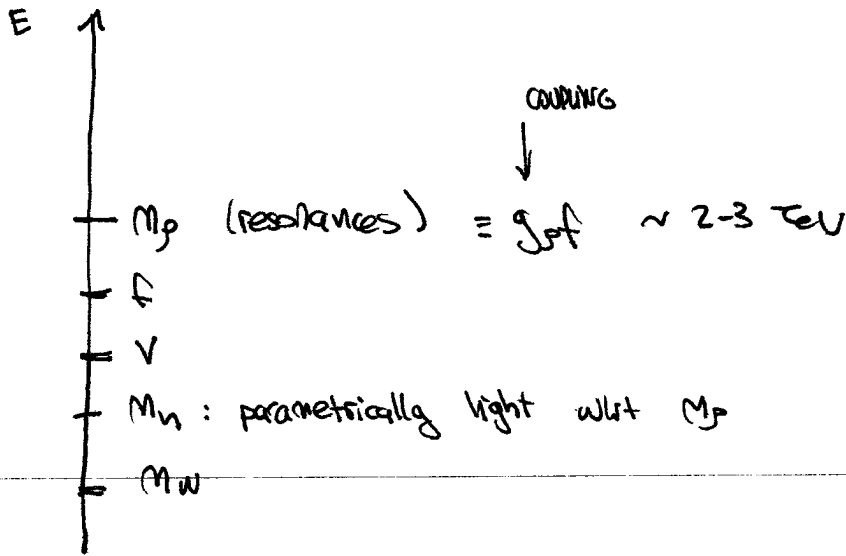 E
COUPLING
Mρ (resonances) ≡ gρf ~ 2-3 TeV
f
V
Mh : parametrically light wrt Mρ
MW